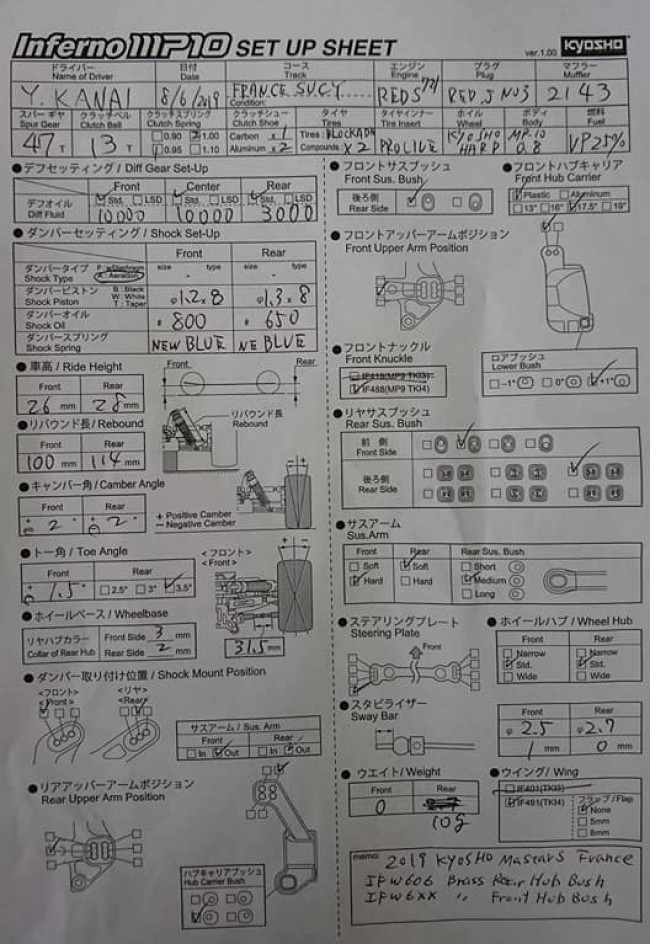 Inferno MP10 SET UP SHEET ver.1.00 KYOSHO
ドライバー 日付 コース エンジン プラグ マフラー
Name of Driver Date Track Engine Plug Muffler
Y. KANAI 8/6/2019 FRANCE S.V.C.Y. REDS 721 RED.S NO3 2143
Condition:
スパーギヤ クラッチベル クラッチスプリング クラッチシュー タイヤ タイヤインナー ホイール ボディ 燃料
Spur Gear Clutch Bell Clutch Spring Clutch Shoe Tires Tire Insert Wheel Body Fuel
47 T 13 T □0.90 □1.00 Carbon x 1 Tires : BLOCKADE PROLINE KYOSHO HARD MP-10 0.8 VP25%
□0.95 □1.10 Aluminum x 2 Compounds : X2
●デフセッティング / Diff Gear Set-Up
Front Center Rear
デフオイル □Std. □LSD □Std. □LSD □Std. □LSD
Diff Fluid 10000 10000 3000
●ダンパーセッティング / Shock Set-Up
Front Rear
ダンパータイプ P : w/Diaphragm size type size type
Shock Type A : Aeration - -
ダンパーピストン B : Black
Shock Piston W : White T : Taper φ1.2x8 φ1.3x8
ダンパーオイル
Shock Oil # 800 # 650
ダンパースプリング
Shock Spring NEW BLUE NE BLUE
●車高 / Ride Height
Front Rear
26 mm 28 mm
Front Rear
●リバウンド長 / Rebound
Front Rear
100 mm 114 mm
リバウンド長
Rebound
●キャンバー角 / Camber Angle
Front Rear
+ - 2 ° + - 2 °
+ Positive Camber
– Negative Camber
●トー角 / Toe Angle
Front Rear
1.5° □2.5° □3° □3.5°
<フロント>
<Front>
31.5 mm
●ホイールベース / Wheelbase
リヤハブカラー Front Side 3 mm
Collar of Rear Hub Rear Side 2 mm
●ダンパー取り付け位置 / Shock Mount Position
<フロント> <リヤ>
<Front> <Rear>
サスアーム / Sus. Arm
Front Rear
□In □Out □In □Out
●リアアッパーアームポジション
Rear Upper Arm Position
ハブキャリアブッシュ
Hub Carrier Bush
●フロントサスブッシュ
Front Sus. Bush
後ろ側
Rear Side
●フロントハブキャリア
Front Hub Carrier
□Plastic □Aluminum
□13° □16° □17.5° □19°
●フロントアッパーアームポジション
Front Upper Arm Position
●フロントナックル
Front Knuckle
□IF488(MP9 TKI4)
ロアブッシュ
Lower Bush
□−1° □0° □+1°
●リヤサスブッシュ
Rear Sus. Bush
前 側
Front Side
後ろ側
Rear Side
●サスアーム
Sus.Arm
Front Rear Rear Sus. Bush
□Soft □Soft □Short
□Hard □Hard □Medium
□Long
●ステアリングプレート
Steering Plate
Front
●ホイールハブ / Wheel Hub
Front Rear
□Narrow □Narrow
□Std. □Std.
□Wide □Wide
●スタビライザー
Sway Bar
Front Rear
φ 2.5 φ 2.7
1 mm 0 mm
●ウエイト / Weight
Front Rear
0 10g
●ウイング / Wing
□IF491(TKI4)
フラップ / Flap
□None
□5mm
□8mm
memo: 2019 KYOSHO Masters France
IFW606 Brass Rear Hub Bush
IFW6XX 〃 Front Hub Bush